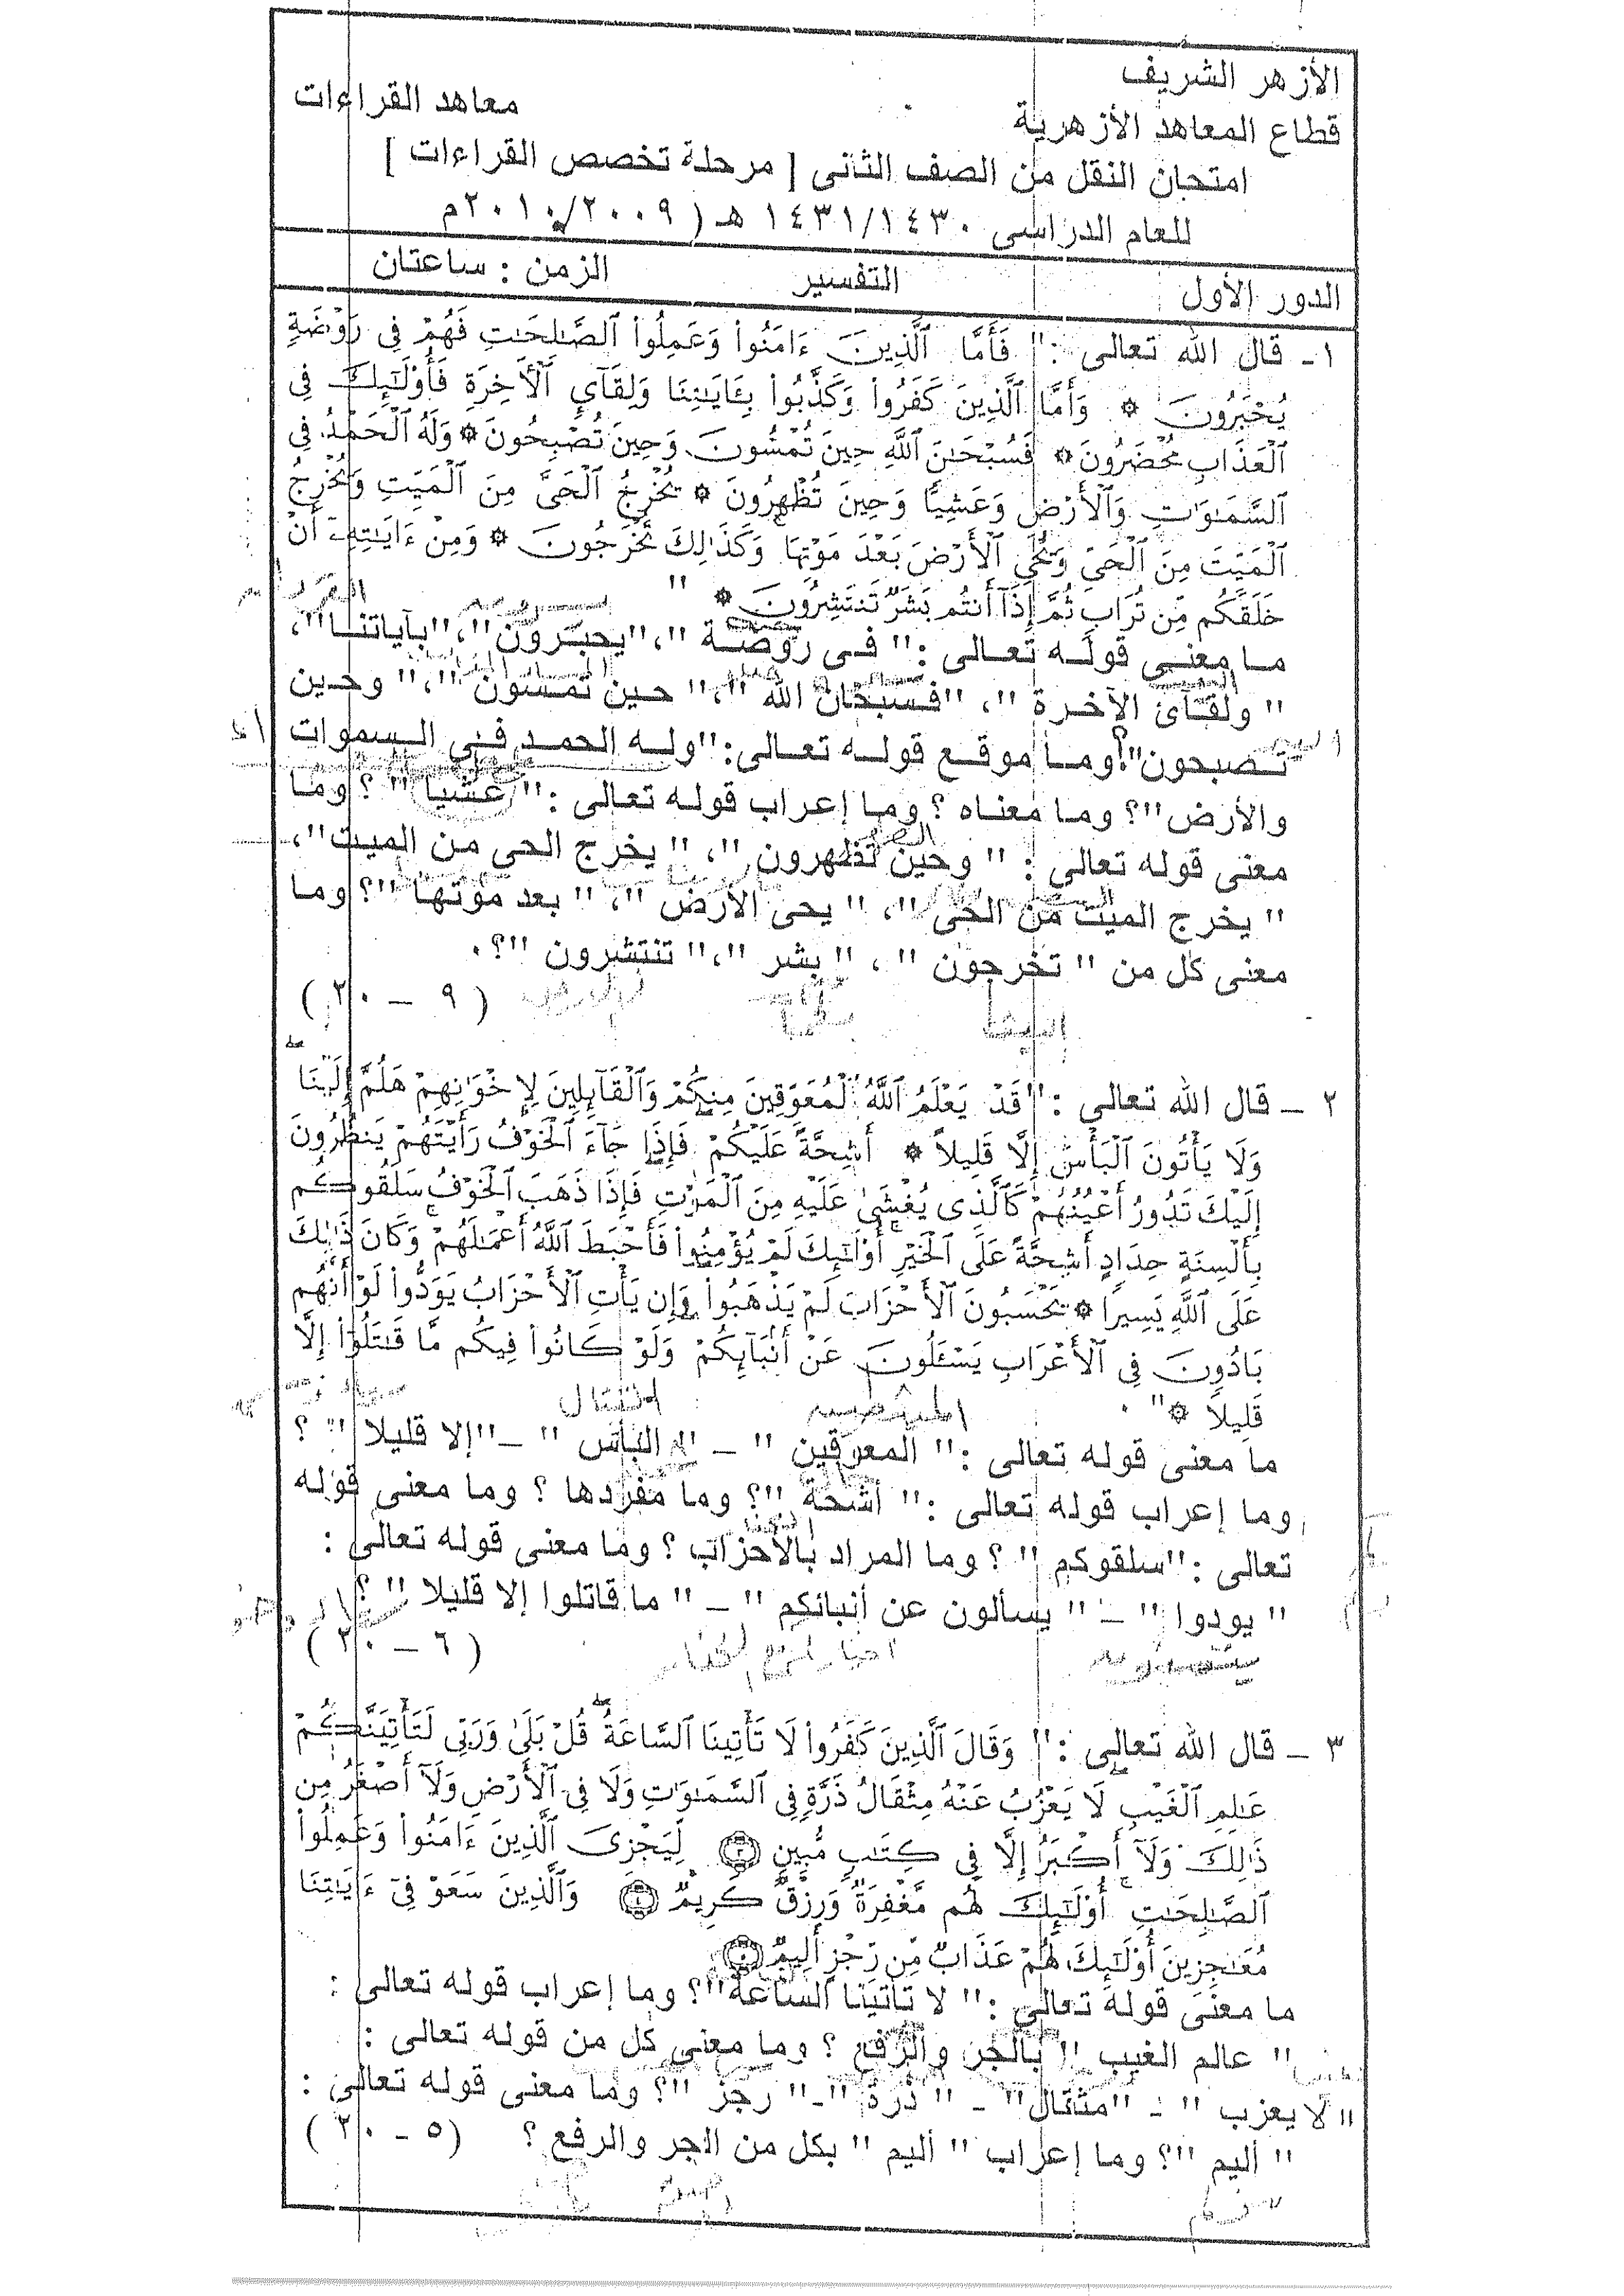 الأزهر الشريف
معاهد القراءات
قطاع المعاهد الأزهرية
امتحان النقل من الصف الثانى [ مرحلة تخصص القراءات ]
للعام الدراسى ١٤٣١/١٤٣٠ هـ ( ٢٠١٠/٢٠٠٩م
الدور الأول التفسير الزمن : ساعتان
١- قال الله تعالى :" فَأَمَّا ٱلَّذِينَ ءَامَنُوا۟ وَعَمِلُوا۟ ٱلصَّـٰلِحَـٰتِ فَهُمْ فِى رَوْضَةٍ
يُحْبَرُونَ * وَأَمَّا ٱلَّذِينَ كَفَرُوا۟ وَكَذَّبُوا۟ بِـَٔايَـٰتِنَا وَلِقَآئِ ٱلْـَٔاخِرَةِ فَأُو۟لَـٰٓئِكَ فِى
ٱلْعَذَابِ مُحْضَرُونَ * فَسُبْحَـٰنَ ٱللَّهِ حِينَ تُمْسُونَ وَحِينَ تُصْبِحُونَ * وَلَهُ ٱلْحَمْدُ فِى
ٱلسَّمَـٰوَٰتِ وَٱلْأَرْضِ وَعَشِيًّا وَحِينَ تُظْهِرُونَ * يُخْرِجُ ٱلْحَىَّ مِنَ ٱلْمَيِّتِ وَيُخْرِجُ
ٱلْمَيِّتَ مِنَ ٱلْحَىِّ وَيُحْىِ ٱلْأَرْضَ بَعْدَ مَوْتِهَا ۚ وَكَذَٰلِكَ تُخْرَجُونَ * وَمِنْ ءَايَـٰتِهِۦٓ أَنْ
خَلَقَكُم مِّن تُرَابٍ ثُمَّ إِذَآ أَنتُم بَشَرٌ تَنتَشِرُونَ * "
ما معنى قوله تعالى :" فى روضة "،"يحبرون"،"بآياتنا"،
" ولقائ الآخرة "، "فسبحان الله "،" حين تمسون "،" وحين
تصبحون"؟وما موقع قوله تعالى:"وله الحمد فى السموات
والأرض"؟ وما معناه ؟ وما إعراب قوله تعالى :" عشيا " ؟ وما
معنى قوله تعالى : " وحين تظهرون "، " يخرج الحي من الميت"،
" يخرج الميت من الحى "، " يحى الأرض "، " بعد موتها "؟ وما
معنى كل من " تخرجون " ، " بشر "،" تنتشرون "؟.
( ٩ – ٢٠ )
٢ – قال الله تعالى :" قَدْ يَعْلَمُ ٱللَّهُ ٱلْمُعَوِّقِينَ مِنكُمْ وَٱلْقَآئِلِينَ لِإِخْوَٰنِهِمْ هَلُمَّ إِلَيْنَا ۖ
وَلَا يَأْتُونَ ٱلْبَأْسَ إِلَّا قَلِيلًا * أَشِحَّةً عَلَيْكُمْ ۖ فَإِذَا جَآءَ ٱلْخَوْفُ رَأَيْتَهُمْ يَنظُرُونَ
إِلَيْكَ تَدُورُ أَعْيُنُهُمْ كَٱلَّذِى يُغْشَىٰ عَلَيْهِ مِنَ ٱلْمَوْتِ ۖ فَإِذَا ذَهَبَ ٱلْخَوْفُ سَلَقُوكُم
بِأَلْسِنَةٍ حِدَادٍ أَشِحَّةً عَلَى ٱلْخَيْرِ ۚ أُو۟لَـٰٓئِكَ لَمْ يُؤْمِنُوا۟ فَأَحْبَطَ ٱللَّهُ أَعْمَـٰلَهُمْ ۚ وَكَانَ ذَٰلِكَ
عَلَى ٱللَّهِ يَسِيرًا * يَحْسَبُونَ ٱلْأَحْزَابَ لَمْ يَذْهَبُوا۟ ۖ وَإِن يَأْتِ ٱلْأَحْزَابُ يَوَدُّوا۟ لَوْ أَنَّهُم
بَادُونَ فِى ٱلْأَعْرَابِ يَسْـَٔلُونَ عَنْ أَنۢبَآئِكُمْ ۖ وَلَوْ كَانُوا۟ فِيكُم مَّا قَـٰتَلُوٓا۟ إِلَّا
قَلِيلًا * " .
القتال
ما معنى قوله تعالى :" المعوقين " – " البأس " –"إلا قليلا " ؟
وما إعراب قوله تعالى :" أشحة "؟ وما مفردها ؟ وما معنى قوله
تعالى :"سلقوكم " ؟ وما المراد بالأحزاب ؟ وما معنى قوله تعالى :
" يودوا " – " يسألون عن أنبائكم " – " ما قاتلوا إلا قليلا " ؟
( ٦ – ٢٠ )
٣ – قال الله تعالى :" وَقَالَ ٱلَّذِينَ كَفَرُوا۟ لَا تَأْتِينَا ٱلسَّاعَةُ ۖ قُلْ بَلَىٰ وَرَبِّى لَتَأْتِيَنَّكُمْ
عَـٰلِمِ ٱلْغَيْبِ ۖ لَا يَعْزُبُ عَنْهُ مِثْقَالُ ذَرَّةٍ فِى ٱلسَّمَـٰوَٰتِ وَلَا فِى ٱلْأَرْضِ وَلَآ أَصْغَرُ مِن
ذَٰلِكَ وَلَآ أَكْبَرُ إِلَّا فِى كِتَـٰبٍ مُّبِينٍ ٣ لِّيَجْزِىَ ٱلَّذِينَ ءَامَنُوا۟ وَعَمِلُوا۟
ٱلصَّـٰلِحَـٰتِ ۚ أُو۟لَـٰٓئِكَ لَهُم مَّغْفِرَةٌ وَرِزْقٌ كَرِيمٌ ٤ وَٱلَّذِينَ سَعَوْ فِىٓ ءَايَـٰتِنَا
مُعَـٰجِزِينَ أُو۟لَـٰٓئِكَ لَهُمْ عَذَابٌ مِّن رِّجْزٍ أَلِيمٌ ٥
ما معنى قوله تعالى :" لا تأتينا الساعة"؟ وما إعراب قوله تعالى :
" عالم الغيب " بالجر والرفع ؟ وما معنى كل من قوله تعالى :
"لا يعزب " – "مثقال" – " ذرة "–" رجز "؟ وما معنى قوله تعالى :
" أليم "؟ وما إعراب " أليم " بكل من الجر والرفع ؟ (٥ – ٢٠ )